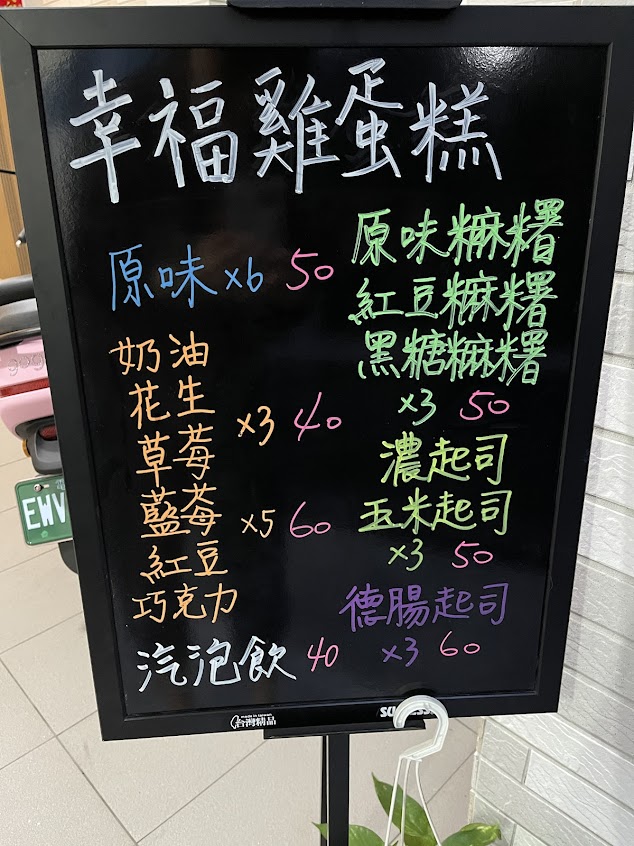 幸福雞蛋糕
原味 x6 50
奶油
花生
草莓
x3 40
藍莓
x5 60
紅豆
巧克力
汽泡飲 40
原味糜糬
紅豆糜糬
黑糖糜糬
x3 50
濃起司
玉米起司
x3 50
德腸起司
x3 60
made in taiwan
台灣精品
EWV